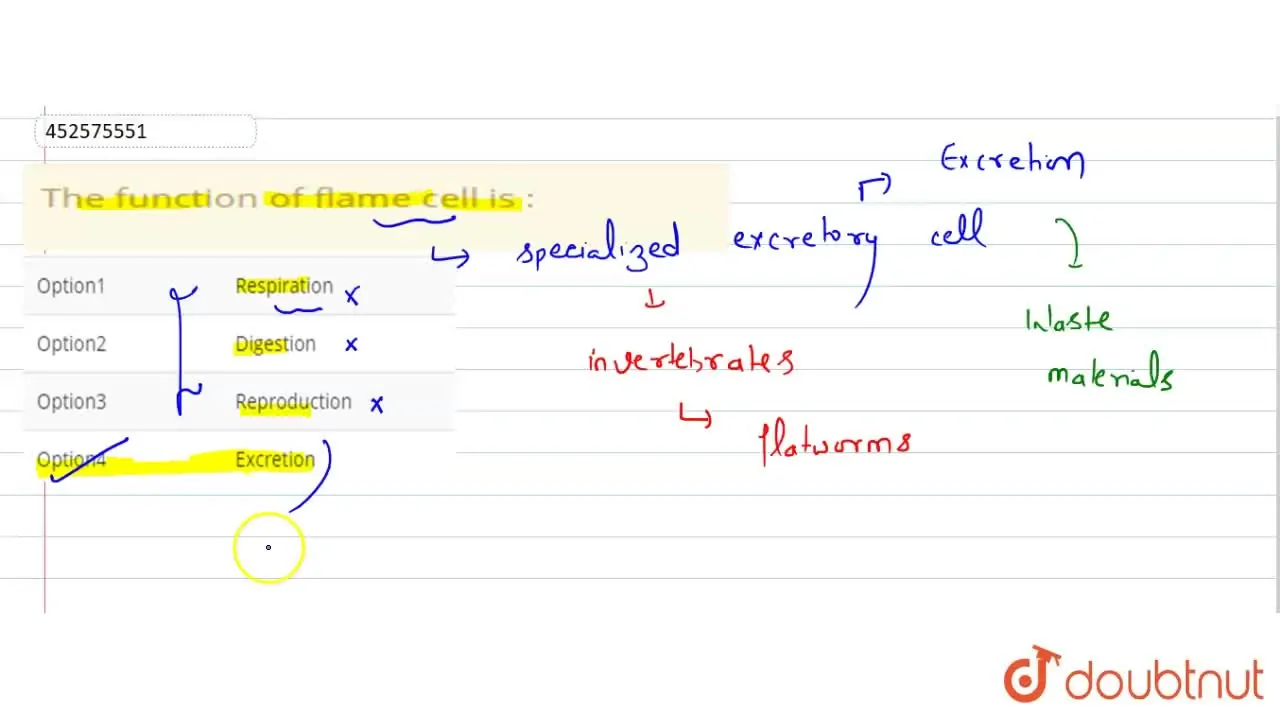 452575551
The function of flame cell is :
Option1 Respiration x
Option2 Digestion x
Option3 Reproduction x
Option4 Excretion
Excretion
specialized excretory cell
invertebrates
flatworms
Waste
materials
doubtnut